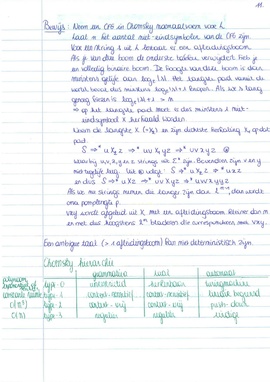 Bewijs: Neem een CFG in Chomsky normaalvorm voor L
Laat n het aantal niet-eindsymbolen van de CFG zijn
Voor een string s uit L bestaat er een afleidingsboom
Als je van deze boom de onderste takken verwijdert heb je
een volledig binaire boom. De hoogte van deze boom is dan
minstens gelijk aan log₂ |s|. Het langste pad vanuit de
wortel bevat dus minstens log₂ |s| + 1 knopen. Als we s lang
genoeg kiezen is log₂ |s| + 1 > n
→ op het langste pad moet er dus minstens 1 niet-
eindsymbool X herhaald worden
Noem de langste X (=X₁) en zijn diepste herhaling X₂ op dat
pad.
S ⇒* u X₁ z ⇒* u v X₂ y z ⇒* u v x y z
waarbij u, v, x, y en z strings uit Σ* zijn. Bovendien zijn v en y
niet tegelijk leeg.
S ⇒* u X z ⇒* u x z
en dus S ⇒* u v X y z ⇒* u v v x y y z
Als we nu strings nemen die langer zijn dan
ons pomplengte p.
vxy wordt afgeleid uit X₁ met een afleidingsboom
en met dus hoogstens bladeren die corresponderen met vxy.
Een ambigue taal (> 1 afleidingsboom) kan niet deterministisch zijn.
Chomsky hierarchie
grammatica taal automaat
type-0 herkenbaar turingmachine
type-1 context-sensitief context-sensitief lineair begrensd
O(n³) type-2 context-vrij context-vrij push-down
O(n) type-3 regulier regulier eindige